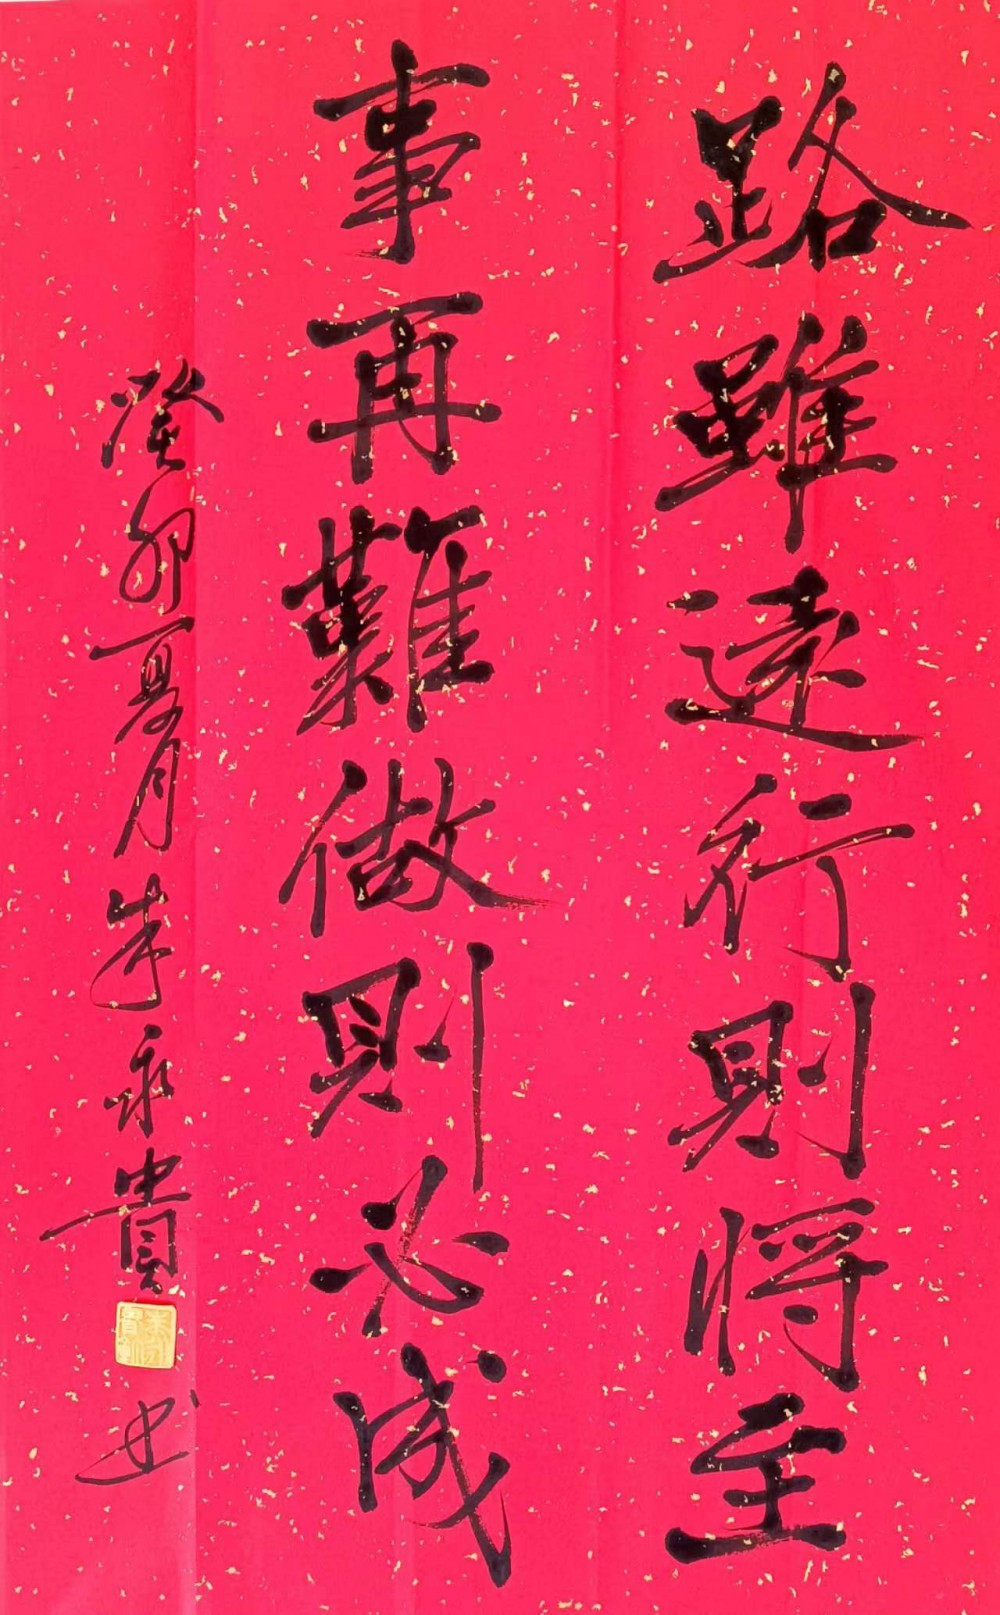 路雖遠行則將至
事再難做則必成
癸卯夏月朱永貴书